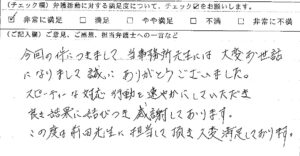 (チェック欄) 弁護活動に対する満足度について、チェック☑をお願いします。
☑ 非常に満足 □ 満足 □ やや満足 □ 不満 □ 非常に不満
(ご記入欄) ご意見、ご感想、担当弁護士への一言など
今回の件につきまして、当事務所先生には大変お世話
になりまして誠にありがとうございました。
スピーディーな対応、行動を速やかにしていただき
良き結果に結びつき感謝しております。
この度は前田先生に担当して頂き大変満足しております。